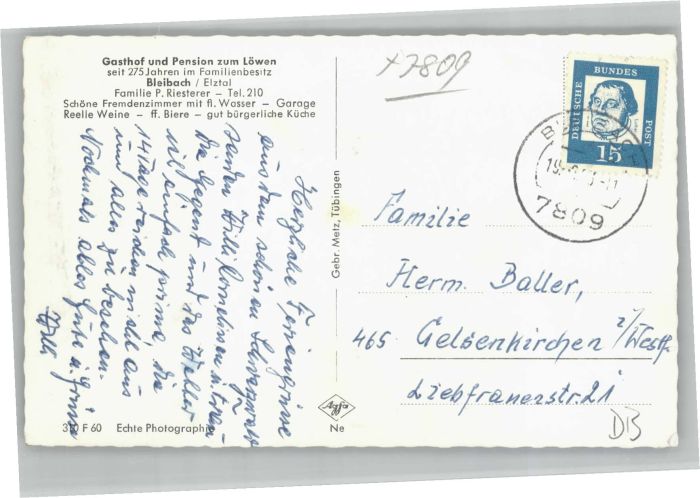 Gasthof und Pension zum Löwen
seit 275 Jahren im Familienbesitz
Bleibach / Elztal
Familie P. Riesterer – Tel. 210
Schöne Fremdenzimmer mit fl. Wasser – Garage
Reelle Weine – ff. Biere – gut bürgerliche Küche
Herzliche Feriengrüsse
aus dem schönen Schwarzwald
senden Willi Cornelissen u. Frau
Die Gegend und das Wetter
ist einfach prima, die
14 Tage reichen nicht aus
um alles zu besehen.
Nochmals alles Gute u. Grüsse
Willi
310 F 60 Echte Photographie
Gebr. Metz, Tübingen
Agfa
Ne
+7809
DEUTSCHE
BUNDES
POST
15
7809
Familie
Herm. Baller,
465 Gelsenkirchen i/Westf.
Liebfrauenstr. 21
DB